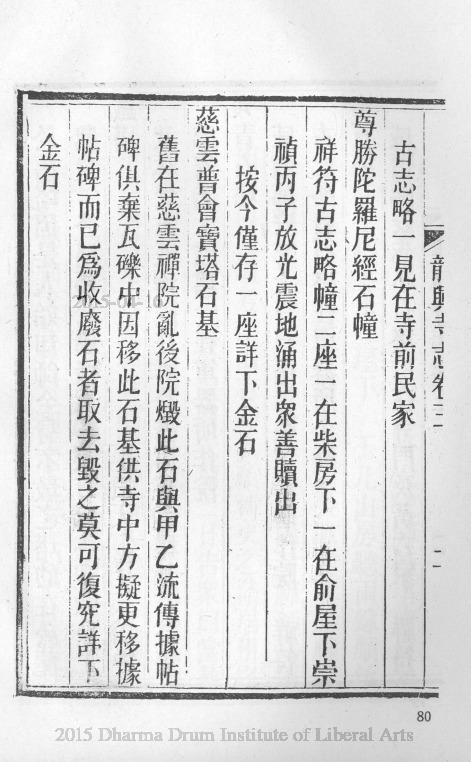 龍興寺志卷二
古志略一見在寺前民家
尊勝陀羅尼經石幢
祥符古志略幢二座一在柴房下一在俞屋下崇
禎丙子放光震地涌出衆善贖出
按今僅存一座詳下金石
慈雲普會寶塔石基
舊在慈雲禪院亂後院燬此石與甲乙流傳據帖
碑俱棄瓦礫中因移此石基供寺中方擬更移據
帖碑而已爲收廢石者取去毀之莫可復究詳下
金石
80
2015 Dharma Drum Institute of Liberal Arts